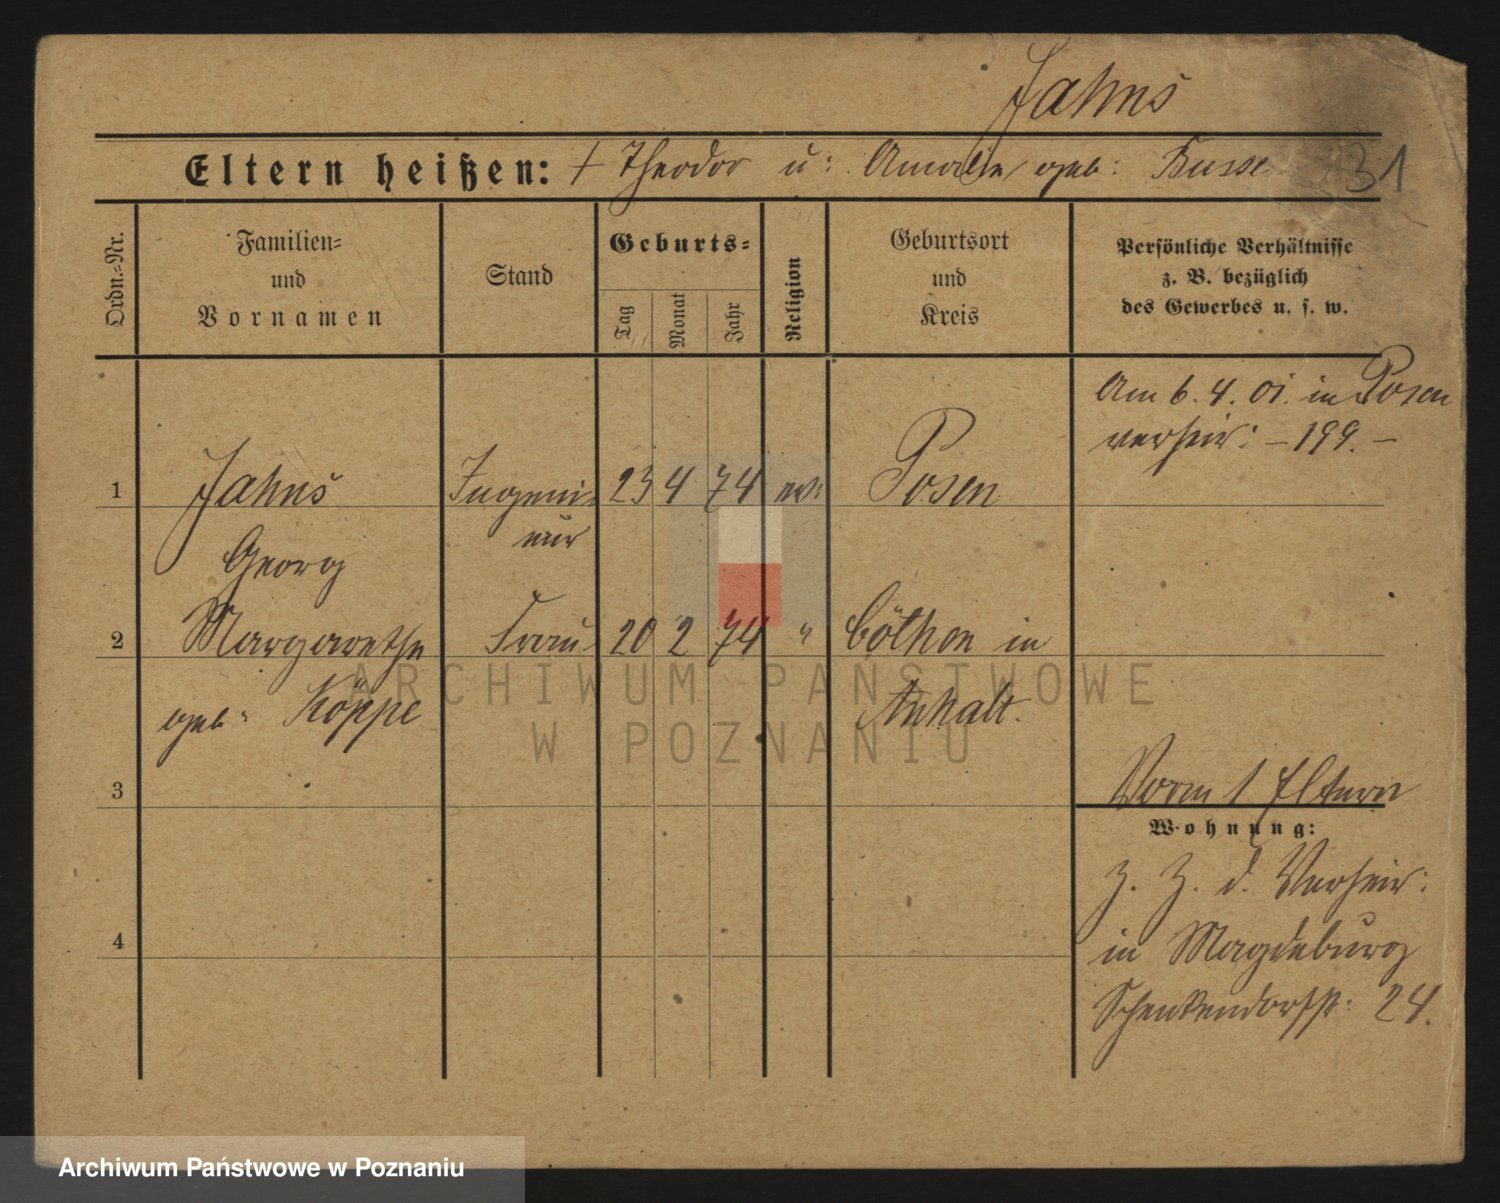 Jahns
Eltern heißen: + Theodor u: Amalie geb: Busse 31
Ordn.-Nr.
Familien-
und
Vornamen
Stand
Geburts-
Tag
Monat
Jahr
Religion
Geburtsort
und
Kreis
Persönliche Verhältnisse
z. B. bezüglich
des Gewerbes u. s. w.
Am 6. 4. 01. in Posen
verheir: – 199. –
1 Jahns Ingeni- 23 4 74 ev: Posen
eur
Georg
2 Margarethe Frau 20 2 74 " Cöthen in
geb: Köppe Anhalt.
3
Vorm 1 Eltern
Wohnung:
z. Z. d. Verheir:
in Magdeburg
Schenkendorfstr: 24.
4
ARCHIWUM PAŃSTWOWE
W POZNANIU
Archiwum Państwowe w Poznaniu